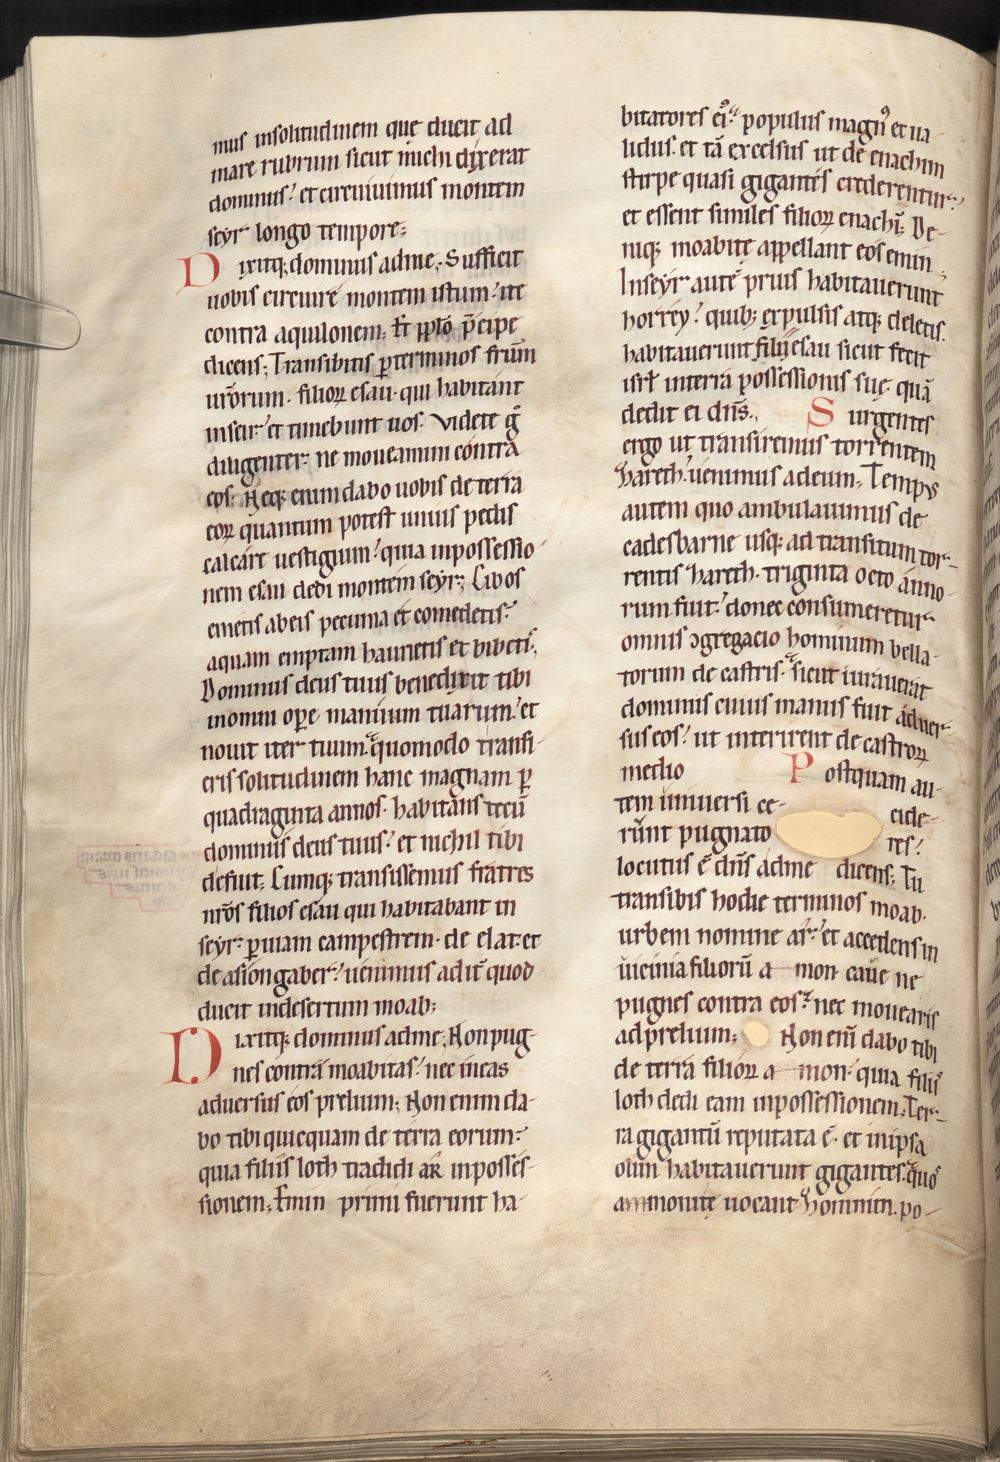 mus insolitudinem quę ducit ad
mare rubrum sicut michi dixerat
dominus? et circuivimus montem
seyr longo tempore;
Dixitq; dominus adme; Sufficit
uobis circuire montem istum? ite
contra aquilonem; Et pplo p̄cipe
dicens; Transibitis p̱terminos frūm
ur̄orum. filioꝝ esau. qui habitant
inseir? et timebunt uos. Videte g̊
diligenter. ne moueamini contra
eos. Neq; enim dabo uobis de terra
eoꝝ quantum potest unius pedis
calcare uestigium? quia inpossessio-
nem esau dedi montem seyr; Cibos
emetis abeis pecunia et comedetis?
aquam emptam haurietis et bibetis;
Dominus deus tuus benedixit tibi
inomni opere manuum tuarum? et
nouit iter tuum. quomodo transi-
eris solitudinem hanc magnam p̱
quadraginta annos. habitans tecū
dominus deus tuus? et nichil tibi
defuit; Cumq; transissemus fratres
nr̄os filios esau qui habitabant in
seyr. p̱uiam campestrem. de elat. et
de asiongaber? uenimus adit̄ quod
ducit indesertum moab;
Dixitq; dominus adme; Non pug-
nes contra moabitas? nec ineas
aduersus eos prelium; Non enim da-
bo tibi quicquam de terra eorum?
quia filiis loth tradidi ar inposses-
sionem; Emin primi fuerunt ha-
bitatores ei᷒. populus magn᷒ et ua-
lidus. et tā excelsus ut de enachim
stirpe quasi gigantes crederentur?
et essent similes filioꝝ enachī; De-
niq; moabitę appellant eos emin.
Inseyr autē prius habitauerunt
horrey? quib; expulsis atq; deletis.
habitauerunt filii esau sicut fecit
isrl interra possessionis suę. quā
dedit ei dn̄s. Surgentes
ergo ut transiremus torrentem
hareth. uenimus adeum; Tempus
autem quo ambulauimus de
cadesbarne usq; ad transitum tor-
rentis hareth. triginta octo anno-
rum fuit? donec consumeretur
omnis ↄgregacio hominum bella-
torum de castris. sicut iurauerat
dominus cuius manus fuit aduer-
sus eos? ut interirent de castroꝝ
medio Postquam au-
tem uniuersi ce- cide-
runt pugnato res?
locutus ē dn̄s adme dicens; Tu
transibis hodie terminos moab.
urbem nomine ar? et accedens in
uicinia filiorū a mon. caue ne
pugnes contra eos? nec mouearis
adprelium; Non enī dabo tibi
de terra filioꝝ a mon? quia filii
loth dedi eam inpossessionem; Ter-
ra gigantū reputata ē. et inipsa
olim habitauerunt gigantes. quos
ammonitę uocant homnim. po-